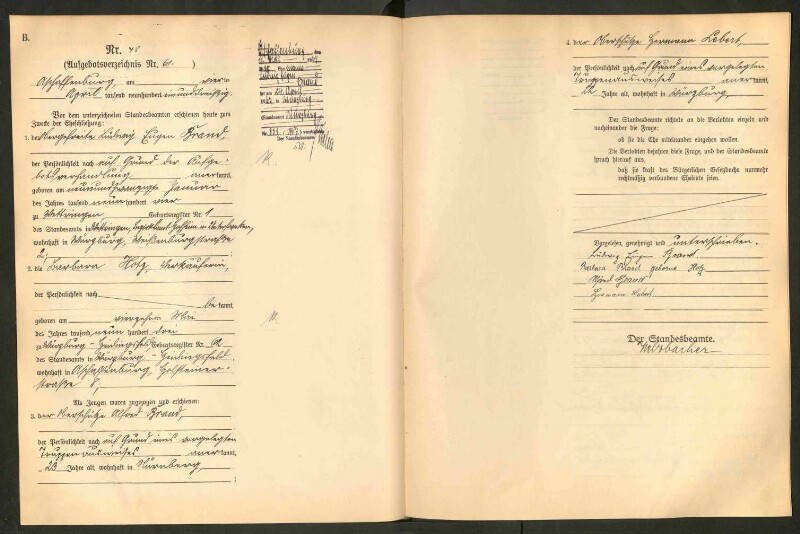 B.
Nr. 48
(Aufgebotsverzeichnis Nr. 61.)
Aschaffenburg, am vier
April tausend neunhundert einunddreißig
Vor dem unterzeichneten Standesbeamten erschienen heute zum
Zwecke der Eheschließung:
1. der Obergefreite Ludwig Eugen Brand
der Persönlichkeit nach auf Grund der Aufge-
botsverhandlung anerkannt,
geboren am neunundzwanzigsten Januar
des Jahres tausend neunhundert vier
zu Wettringen, Geburtsregister Nr. 1
des Standesamts in Wettringen,
wohnhaft in Würzburg,
2;
2. die Barbara Hotz, Verkäuferin,
der Persönlichkeit nach bekannt,
geboren am vierzehnten Mai
des Jahres tausend neun hundert drei
zu Würzburg-Heidingsfeld, Geburtsregister Nr. 62
des Standesamts in Würzburg-Heidingsfeld,
wohnhaft in Aschaffenburg, Holsteiner-
straße 8;
Als Zeugen waren zugezogen und erschienen:
3. der Oberschütze Alfred Brand
der Persönlichkeit nach auf Grund eines vorgelegten
Truppenausweises anerkannt,
23 Jahre alt, wohnhaft in Nürnberg,
;
Aschaffenburg
4. der Oberschütze Hermann Lebert,
der Persönlichkeit nach auf Grund eines vorgelegten
Truppenausweises anerkannt,
22 Jahre alt, wohnhaft in Würzburg.
Der Standesbeamte richtete an die Verlobten einzeln und
nacheinander die Frage:
ob sie die Ehe miteinander eingehen wollen.
Die Verlobten bejahten diese Frage, und der Standesbeamte
sprach hierauf aus,
daß sie kraft des Bürgerlichen Gesetzbuchs nunmehr
rechtmäßig verbundene Eheleute seien.
Vorgelesen, genehmigt und unterschrieben.
Ludwig Eugen Brand
Barbara Brand geborene Hotz
Alfred Brand
Hermann Lebert
Der Standesbeamte.